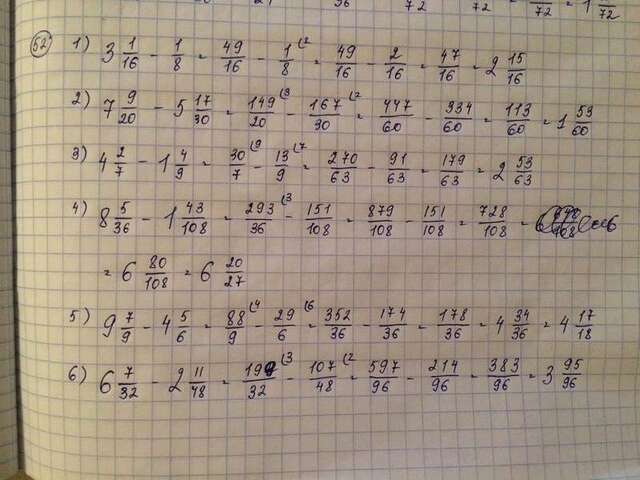 72 72 72 1 72
52 1) 3 1/16 - 1/8 = 49/16 - 1/8 (2 = 49/16 - 2/16 = 47/16 = 2 15/16
2) 7 9/20 - 5 17/30 = 149/20 (3 - 167/30 (2 = 447/60 - 334/60 = 113/60 = 1 53/60
3) 4 2/7 - 1 4/9 = 30/7 (9 - 13/9 (7 = 270/63 - 91/63 = 179/63 = 2 53/63
4) 8 5/36 - 1 43/108 = 293/36 (3 - 151/108 = 879/108 - 151/108 = 728/108 =
= 6 80/108 = 6 20/27
5) 9 7/9 - 4 5/6 = 88/9 (4 - 29/6 (6 = 352/36 - 174/36 = 178/36 = 4 34/36 = 4 17/18
6) 6 7/32 - 2 11/48 = 199/32 (3 - 107/48 (2 = 597/96 - 214/96 = 383/96 = 3 95/96